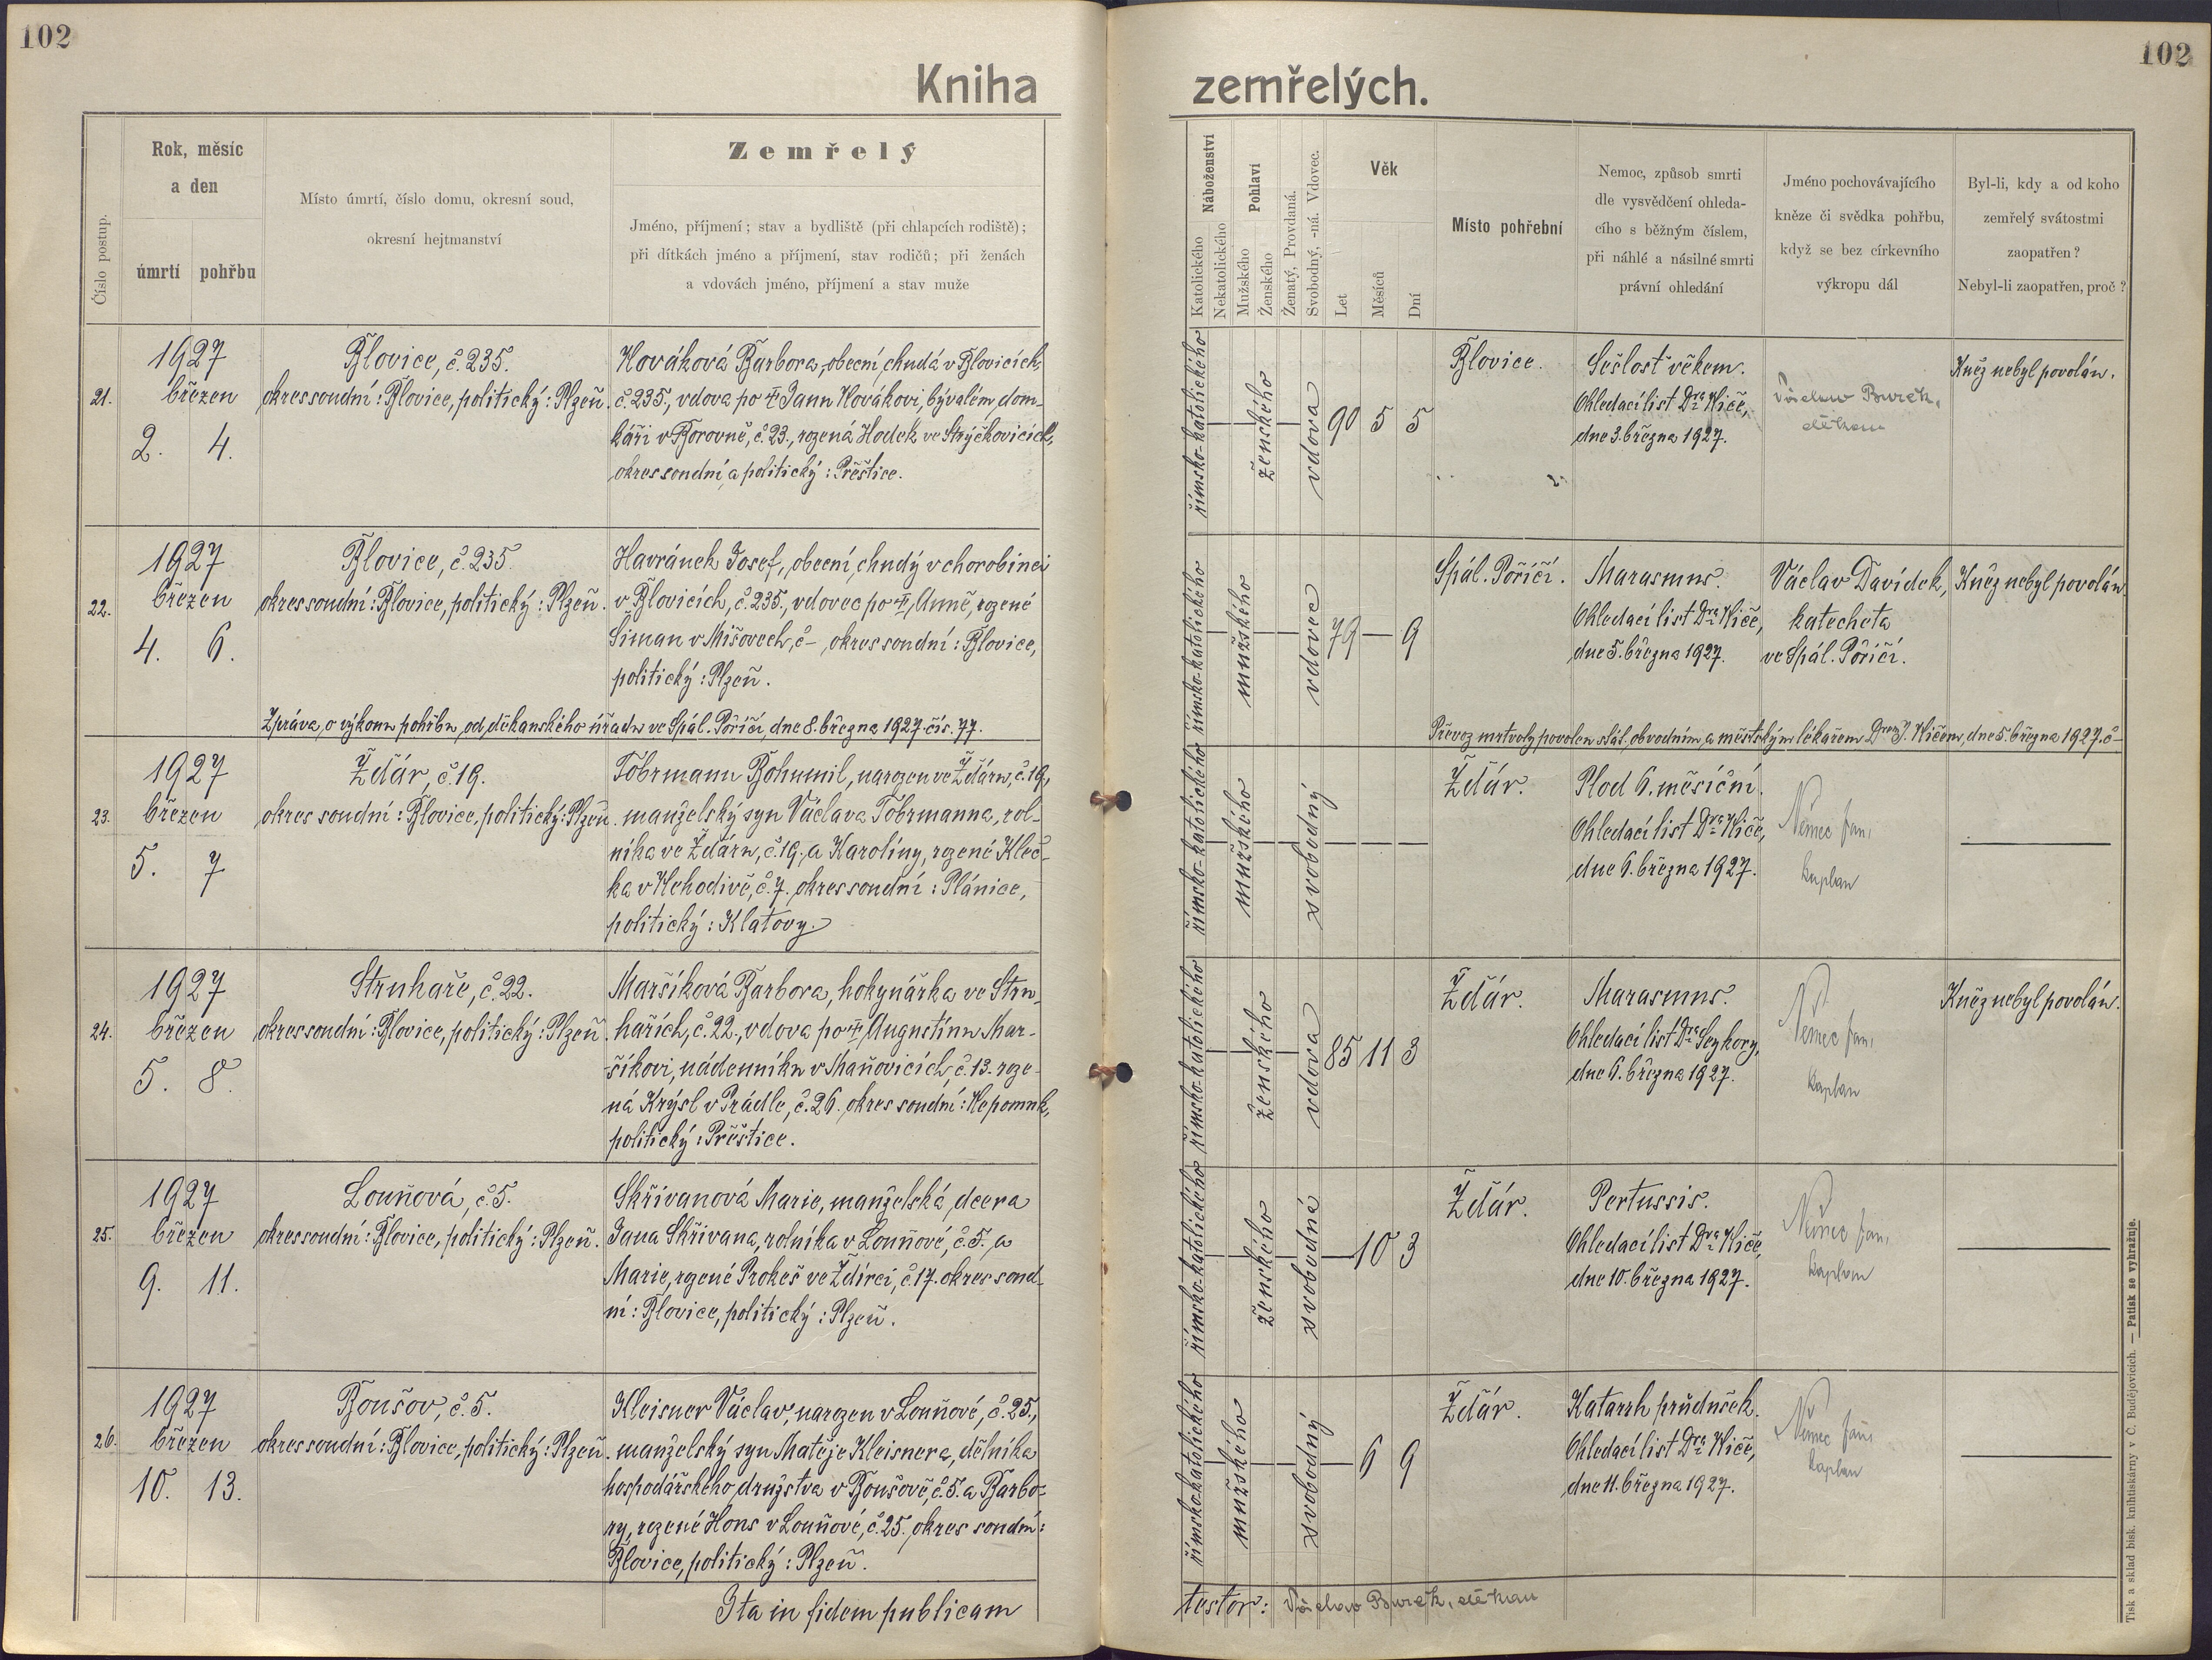 102
102
Kniha zemřelých.
Číslo postup.
Rok, měsíc
a den
úmrtí pohřbu
Místo úmrtí, číslo domu, okresní soud,
okresní hejtmanství
Zemřelý
Jméno, příjmení; stav a bydliště (při chlapcích rodiště);
při dítkách jméno a příjmení, stav rodičů; při ženách
a vdovách jméno, příjmení a stav muže
Náboženství
Katolického
Nekatolického
Pohlaví
Mužského
Ženského
Ženatý, Provdaná.
Svobodný, -ná. Vdovec.
Věk
Let
Měsíců
Dní
Místo pohřební
Nemoc, způsob smrti
dle vysvědčení ohleda-
cího s běžným číslem,
při náhlé a násilné smrti
právní ohledání
Jméno pochovávajícího
kněze či svědka pohřbu,
když se bez církevního
výkropu dál
Byl-li, kdy a od koho
zemřelý svátostmi
zaopatřen?
Nebyl-li zaopatřen, proč?
21.
1927
březen
2. 4.
Blovice, č. 235.
okres soudní: Blovice, politický: Plzeň.
Nováková Barbora, obecní chudá v Blovicích,
č. 235., vdova po † Janu Novákovi, bývalém dom-
káři v Borovně, č. 23., rozená Hodek ve Strýčkovicích,
okres soudní a politický: Přeštice.
římsko-katolického
ženského
vdova
90 5 5
Blovice.
Sešlost věkem.
Ohledací list Dra Niče,
dne 3. března 1927.
Václav Burek,
děkan
Kněz nebyl povolán.
22.
1927
březen
4. 6.
Blovice, č. 235.
okres soudní: Blovice, politický: Plzeň.
Havránek Josef, obecní chudý v chorobinci
v Blovicích, č. 235., vdovec po †, Anně, rozené
Šiman v Mišovech, č – , okres soudní: Blovice,
politický: Plzeň.
Zpráva o výkonu pohřbu, od děkanského úřadu ve Spál. Poříčí, dne 8. března 1927. čís. 77.
římsko-katolického
mužského
vdovec
79 — 9
Spál. Poříčí.
Marasmus.
Ohledací list Dra Niče,
dne 5. března 1927.
Václav Davídek,
katecheta
ve Spál. Poříčí.
Kněz nebyl povolán.
Převoz mrtvoly povolen stát. obvodním a městským lékařem Drem J. Ničem, dne 5. března 1927. č –
23.
1927
březen
5. 7
Ždár, č. 19.
okres soudní: Blovice, politický: Plzeň.
Tóbrmann Bohumil, narozen ve Ždáru, č. 19,
manželský syn Václava Tóbrmanna, rol-
níka ve Ždáru, č. 19. a Karolíny, rozené Kleč-
ka v Nehodivě, č. 7. okres soudní: Plánice,
politický: Klatovy.
římsko-katolického
mužského
svobodný
Ždár.
Plod 6. měsíční.
Ohledací list Dra Niče,
dne 6. března 1927.
Němec Jan,
kaplan
24.
1927
březen
5. 8.
Struhaře, č. 22.
okres soudní: Blovice, politický: Plzeň.
Maršíková Barbora, hokynářka ve Stru-
hařích, č. 22., vdova po † Augustinu Mar-
šíkovi, nádenníku v Maňovicích, č. 13. roze-
ná Krýsl v Prádle, č. 26. okres soudní: Nepomuk,
politický: Přeštice.
římsko-katolického
ženského
vdova
85 11 3
Ždár.
Marasmus.
Ohledací list Dra Seykory,
dne 6. března 1927.
Němec Jan,
kaplan
Kněz nebyl povolán.
25.
1927
březen
9. 11.
Louňová, č. 5.
okres soudní: Blovice, politický: Plzeň.
Skřivanová Marie, manželská dcera
Jana Skřivana, rolníka v Louňové, č. 5. a
Marie, rozené Prokeš ve Ždírci, č. 17. okres soud-
ní: Blovice, politický: Plzeň.
římsko-katolického
ženského
svobodná
10 3
Ždár.
Pertussis.
Ohledací list Dra Niče,
dne 10. března 1927.
Němec Jan,
kaplan
26.
1927
březen
10. 13.
Boušov, č. 5.
okres soudní: Blovice, politický: Plzeň.
Kleisner Václav, narozen v Louňové, č. 25.,
manželský syn Matěje Kleisnera, dělníka
hospodářského družstva v Boušově, č. 5. a Barbo-
ry, rozené Hons v Louňové, č. 25. okres soudní:
Blovice, politický: Plzeň.
římsko-katolického
mužského
svobodný
6 9
Ždár.
Katarrh průdušek.
Ohledací list Dra Niče,
dne 11. března 1927.
Němec Jan,
kaplan
Ita in fidem publicam
testor: Václav Burek, děkan
Tisk a sklad bisk. knihtiskárny v Č. Budějovicích. — Patisk se vyhražuje.